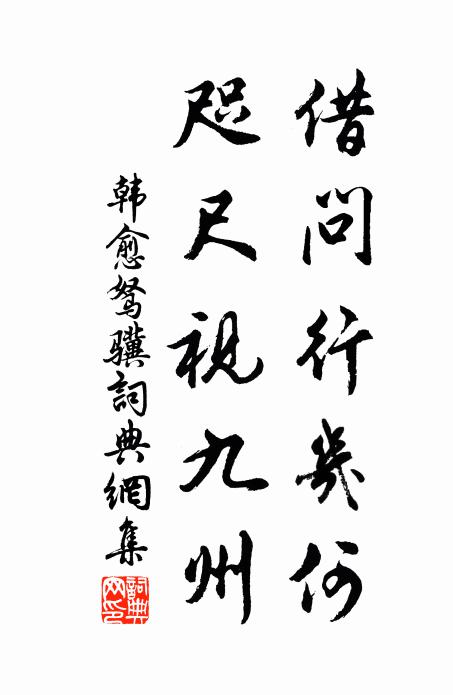 借問行幾何
咫尺視九州
韩愈駑驥詞典網集
詞典网印